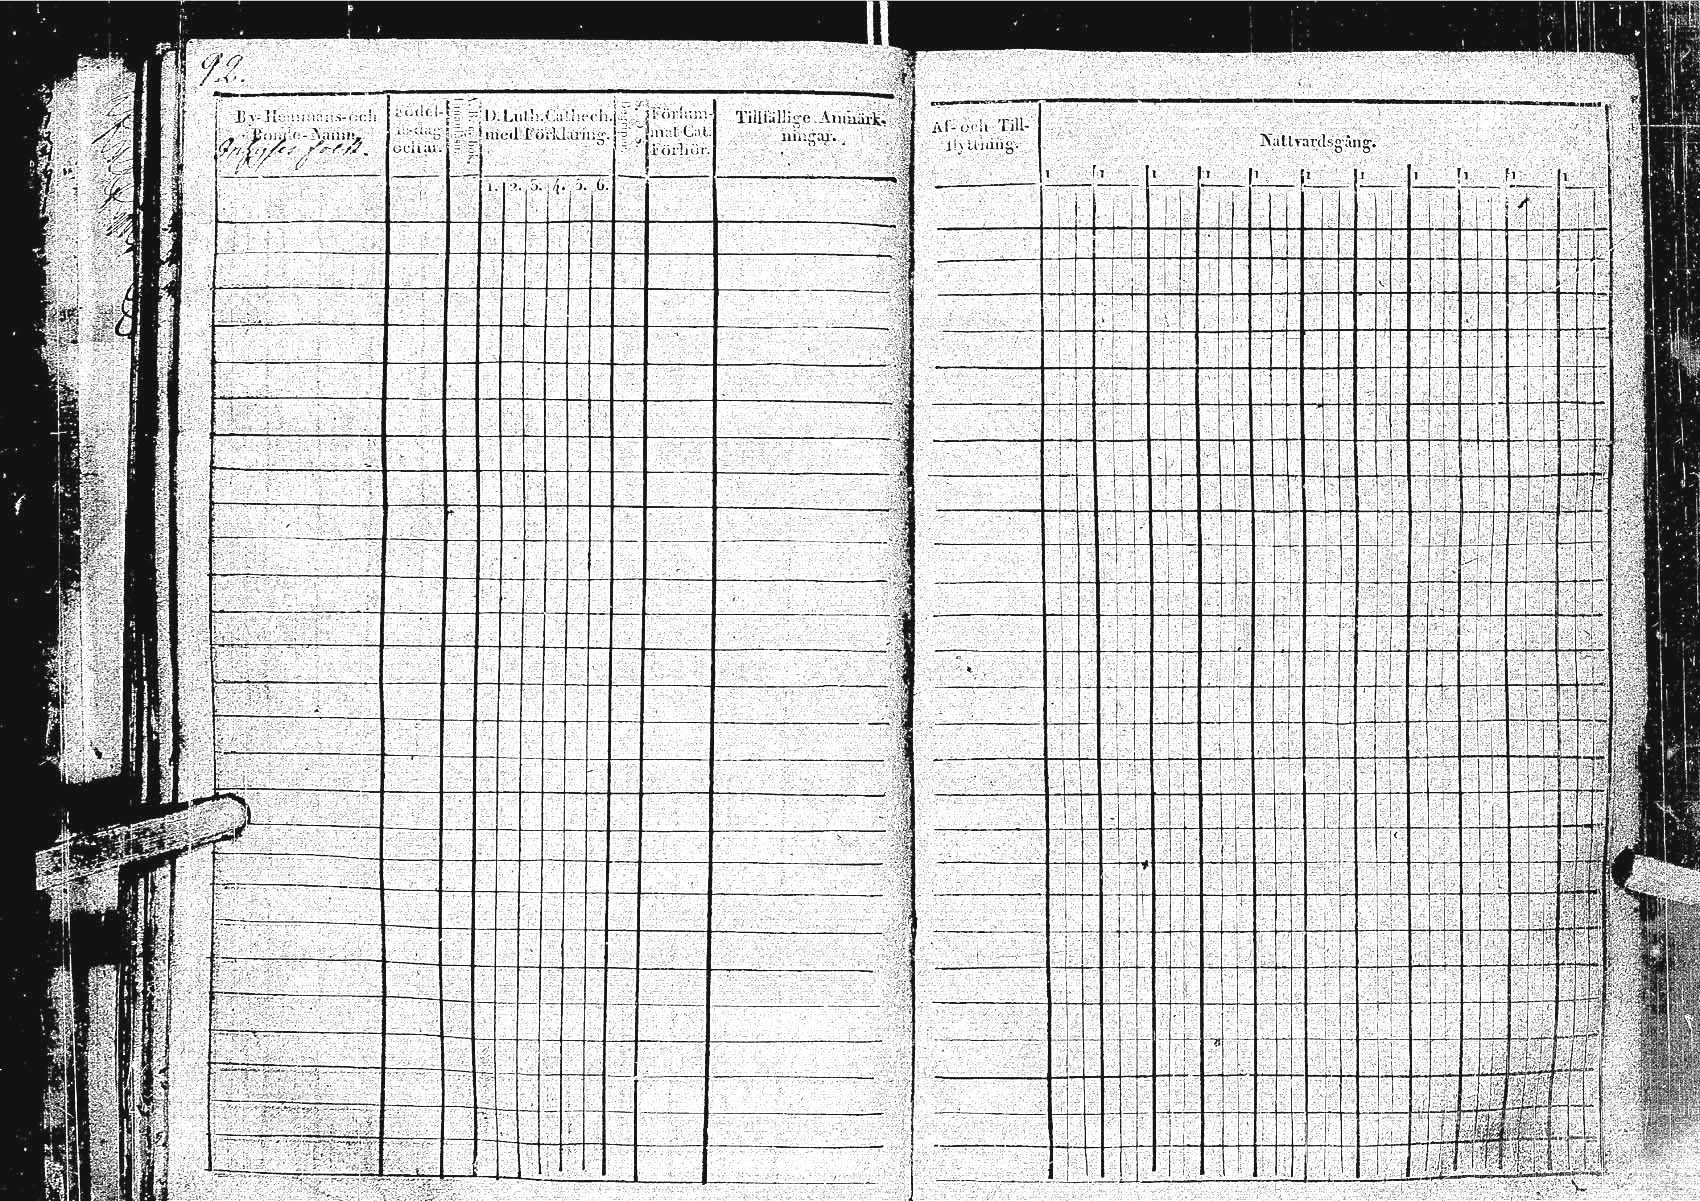 92.
By-Hemmans-och
Bonde-Namn.
Inhyses folk.
Födel-
sedag
och år.
D. Luth. Cathech.
med Förklaring.
1. 2. 3. 4. 5. 6.
Försum-
mat Cat.
Förhör.
Tillfällige Anmärk-
ningar.
Af- och Till-
flyttning.
Nattvardsgång.
1 1 1 1 1 1 1 1 1 1 1